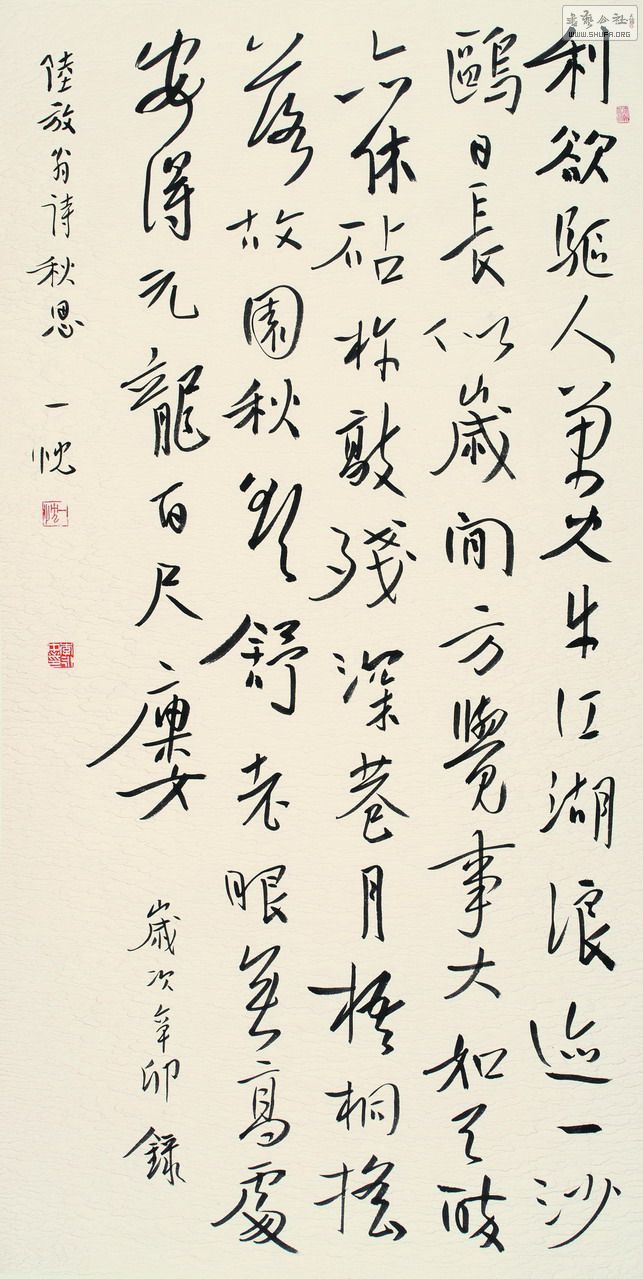 利欲驅人萬火牛江湖浪迹一沙
鷗日長似歲間方覺事大如天醉
亦休砧杵敲殘深巷月梧桐搖
落故園秋欲舒老眼無高處
安得元龍百尺廔
歲次辛卯 錄
陸放翁詩秋思 一忱
書藝公社
WWW.SHUFA.ORG